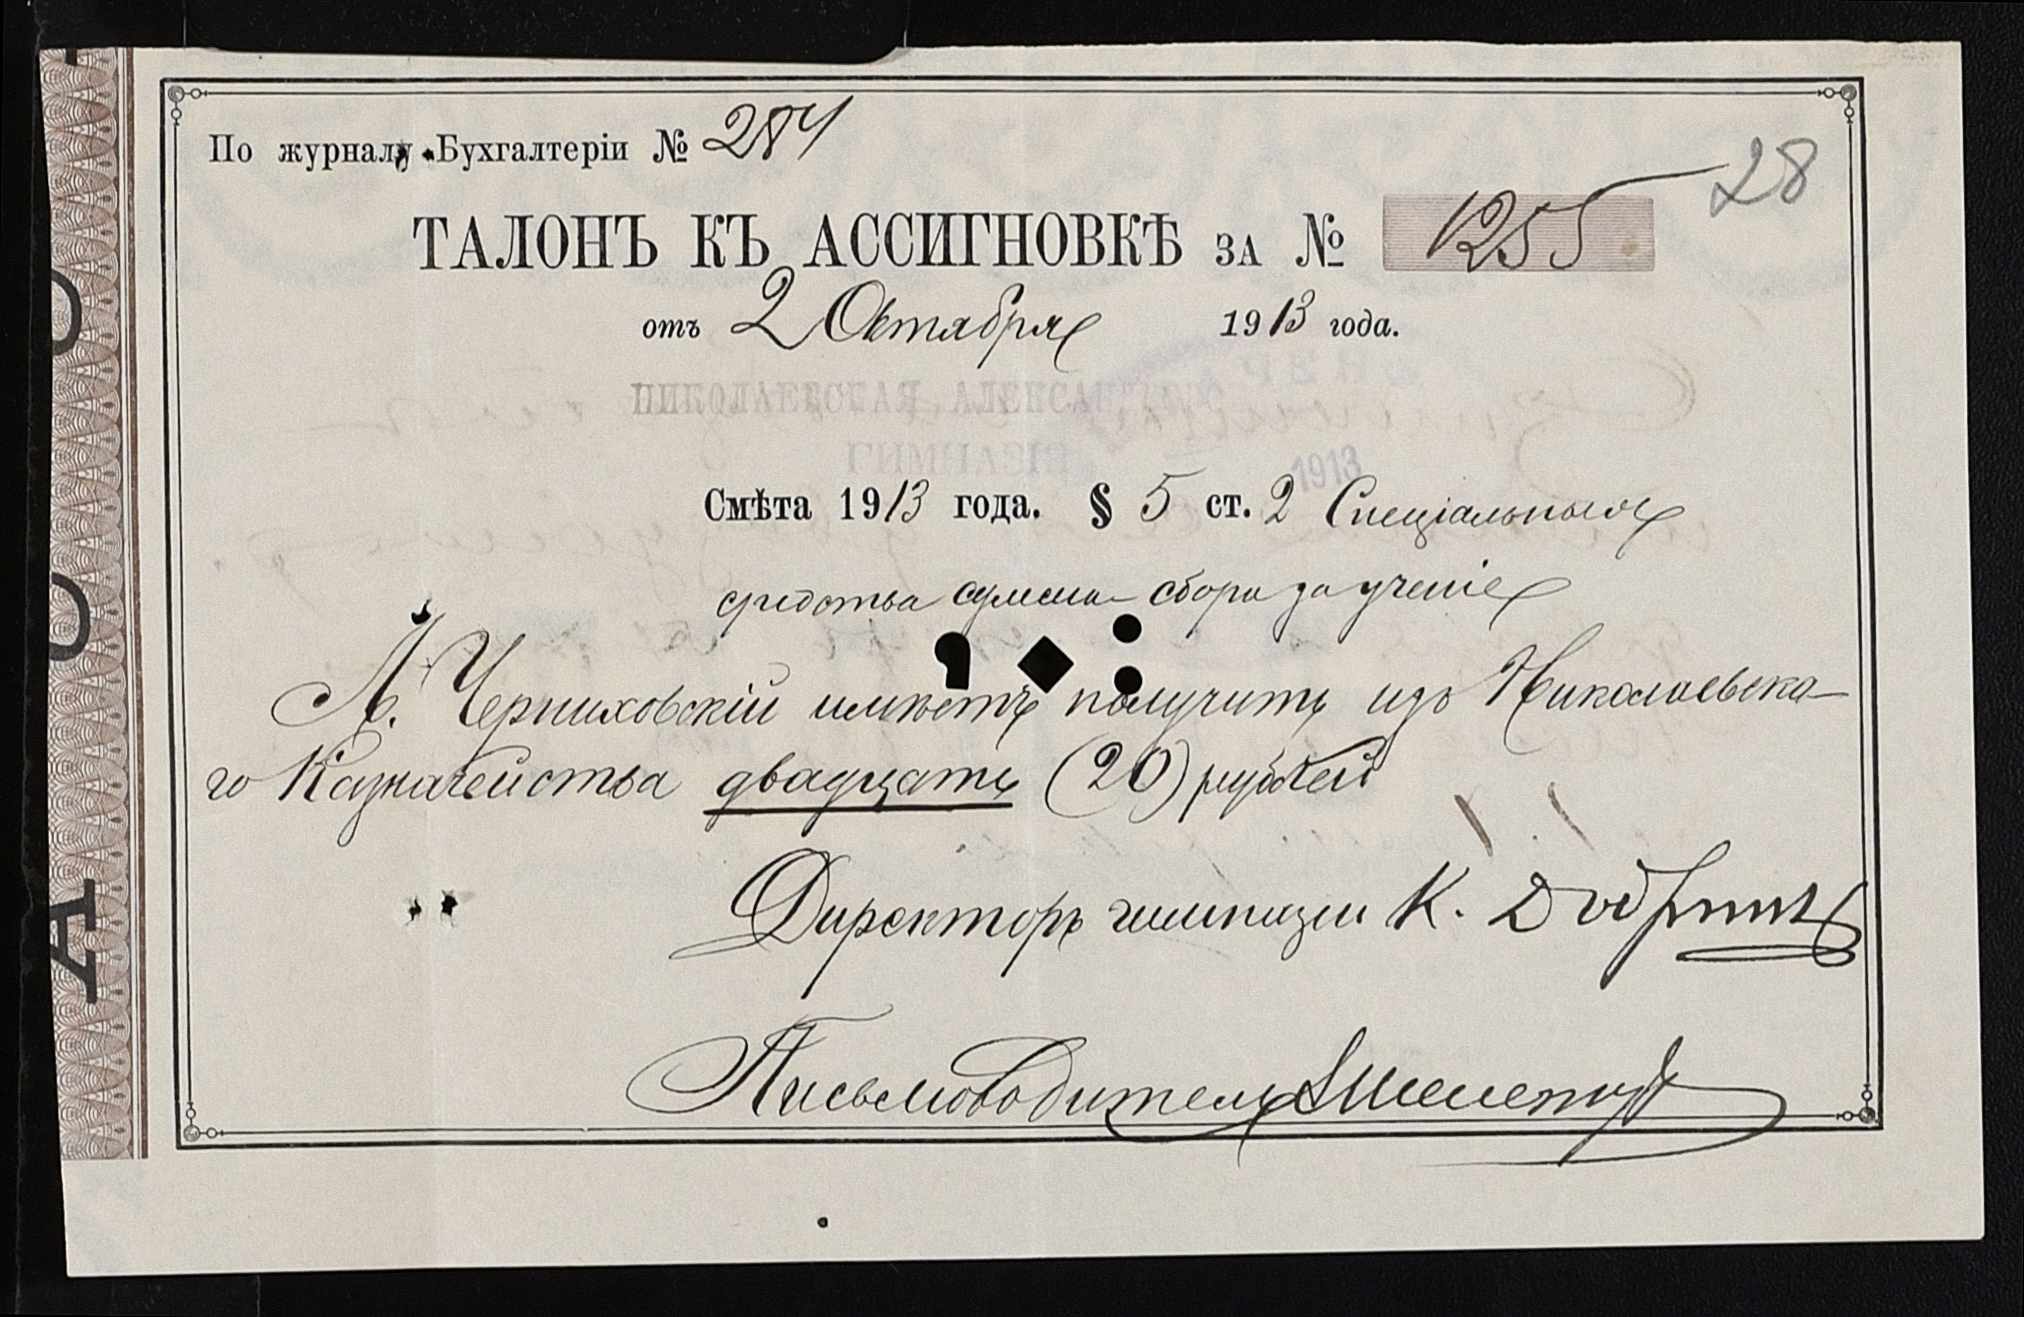 По журналу Бухгалтеріи № 284
28
ТАЛОНЪ КЪ АССИГНОВКѢ ЗА № 1255
отъ 2 Октября 1913 года.
НИКОЛАЕВСКАЯ АЛЕКСАНДРОВ
ГИМНАЗІЯ
1913
Смѣта 1913 года. § 5 ст. 2 Спеціальныя
средства сумма сбора за ученіе
Л. Черниховскій имѣетъ получить изъ Николаевска-
го Казначейства двадцать (20) рублей
Директоръ гимназіи К.
Письмоводитель